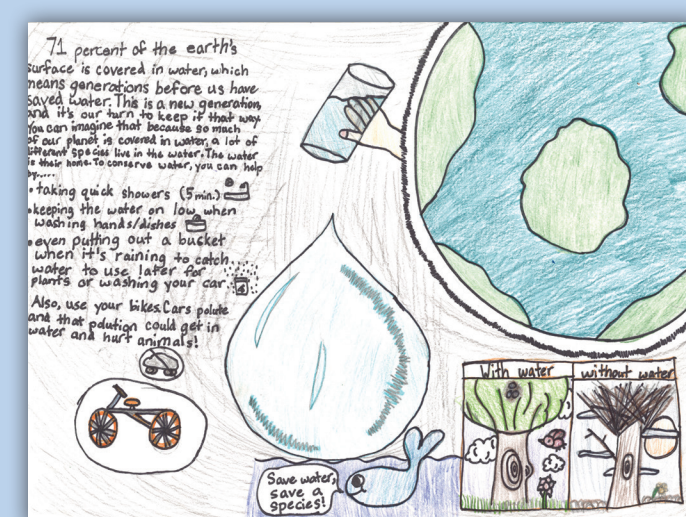 71 percent of the earth's
surface is covered in water, which
means generations before us have
saved water. This is a new generation,
and it's our turn to keep it that way.
You can imagine that because so much
of our planet is covered in water, a lot of
different species live in the water. The water
is their home. To conserve water, you can help
by.....
• taking quick showers (5 min.)
• keeping the water on low when
washing hands/dishes
• even putting out a bucket
when it's raining to catch
water to use later for
plants or washing your car.
Also, use your bikes. Cars polute
and that polution could get in
water and hurt animals!
Save water,
save a
species!
With water
without water